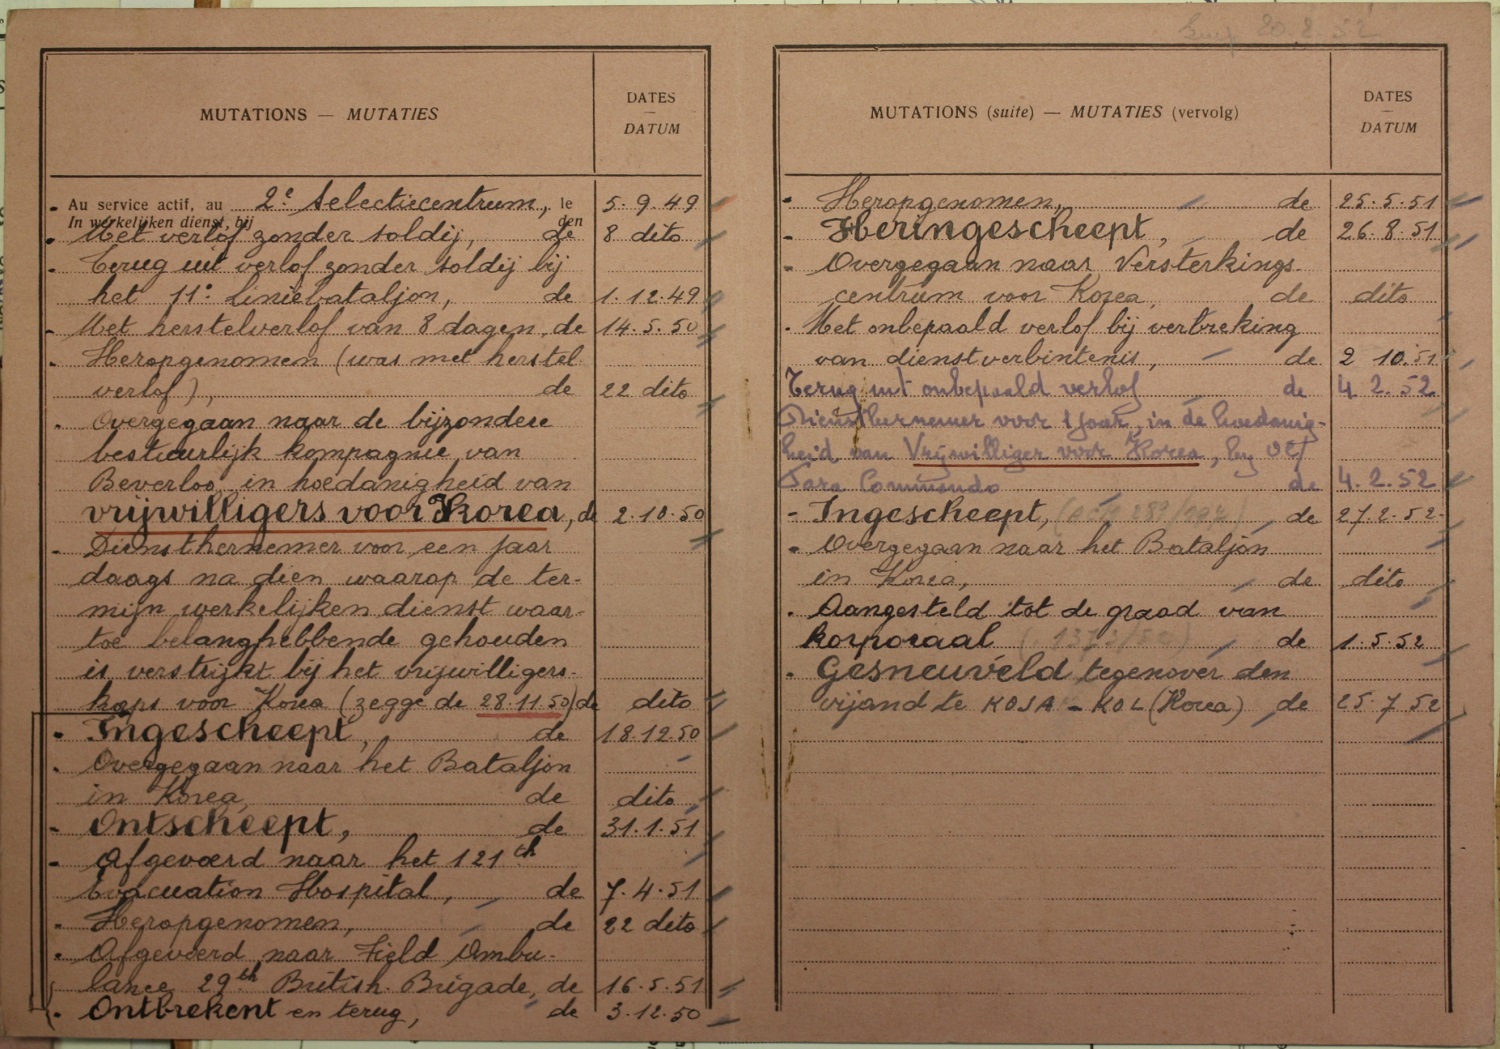 20.8.52
MUTATIONS — MUTATIES
DATES
DATUM
Au service actif, au 2e Selectiecentrum, le 5.9.49
In werkelijken dienst, bij den
- Met verlof zonder soldij, de 8 dito
- Terug uit verlof zonder soldij bij
het 11e Liniebataljon, de 1.12.49
- Met herstelverlof van 8 dagen, de 14.5.50
- Heropgenomen (was met herstel
verlof), de 22 dito
- Overgegaan naar de bijzondere
bestuurlijk kompagnie van
Beverloo in hoedanigheid van
vrijwilligers voor Korea, de 2.10.50
- Diensthernemer voor een jaar
daags na dien waarop de ter-
mijn werkelijken dienst waar-
toe belanghebbende gehouden
is verstrijkt bij het vrijwilligers-
korps voor Korea (zegge de 28.11.50) de dito
- Ingescheept, de 18.12.50
- Overgegaan naar het Bataljon
in Korea, de dito
- Ontscheept, de 31.1.51
- Afgevoerd naar het 121th
Evacuation Hospital, de 7.4.51
- Heropgenomen, de 22 dito
- Afgevoerd naar Field Ambu-
lance 29th British Brigade, de 16.5.51
- Ontbrekent en terug, de 3.12.50
MUTATIONS (suite) — MUTATIES (vervolg)
DATES
DATUM
- Heropgenomen, de 25.5.51
- Heringescheept, de 26.8.51
- Overgegaan naar Versterkings-
centrum voor Korea, de dito
- Met onbepaald verlof bij verbreking
van dienstverbintenis, de 2 10.51
Terug uit onbepaald verlof de 4.2.52
Diensthernemer voor 1 jaar, in de hoedanig-
heid van Vrijwilliger voor Korea, by
Para Commando de 4.2.52
- Ingescheept, de 27.2.52
- Overgegaan naar het Bataljon
in Korea, de dito
- Aangesteld tot de graad van
korporaal (1372/52) de 1.5.52
- Gesneuveld tegenover den
vijand te KOJA-KOL (Korea) de 25.7.52